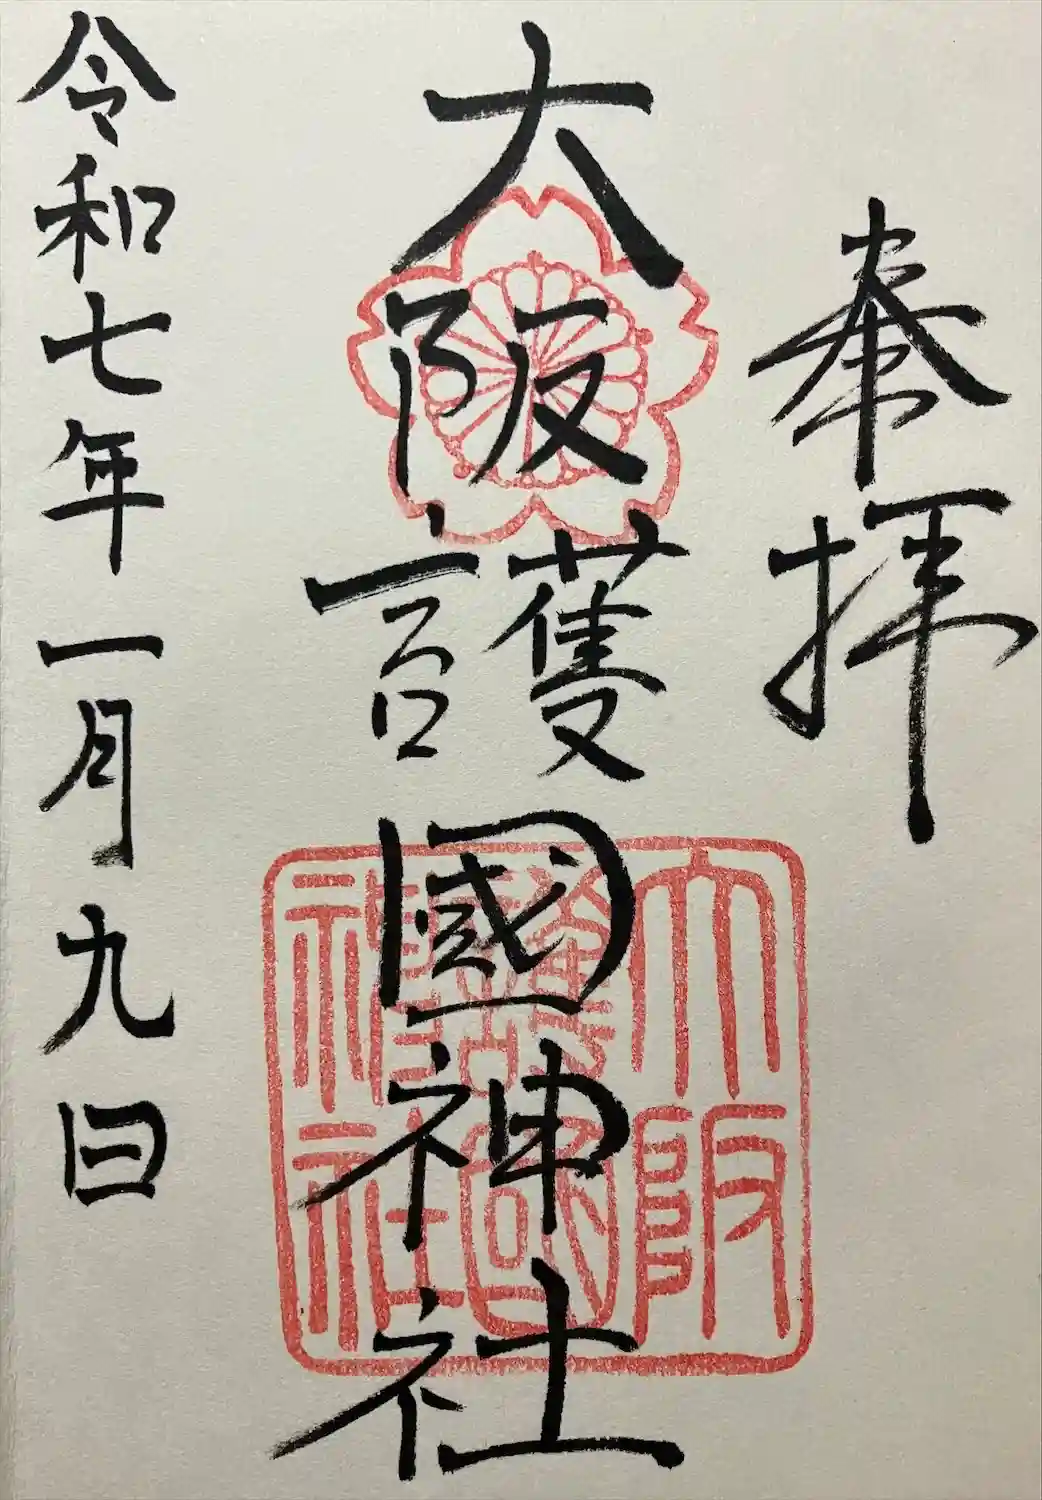 奉拝
大阪護國神社
大阪護國神社
令和七年一月九日